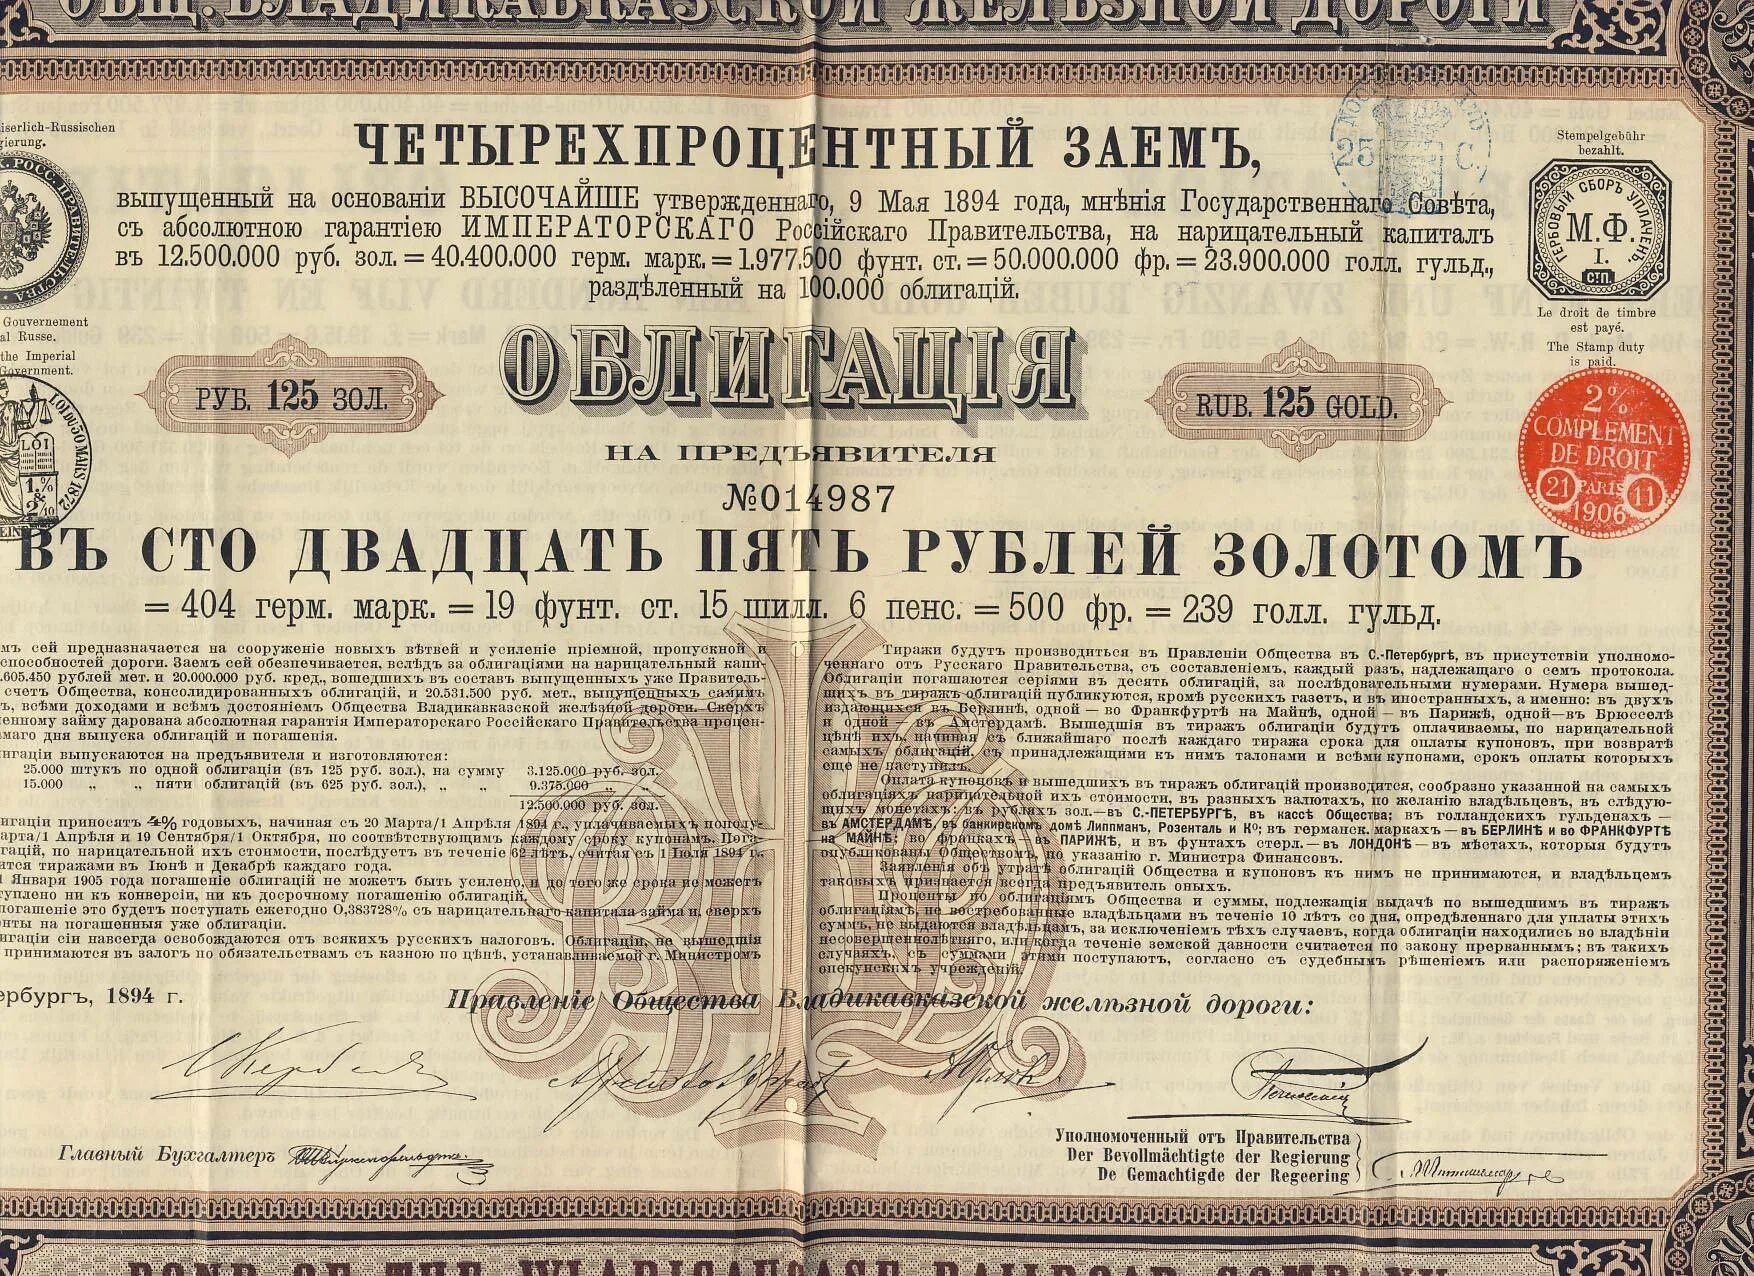 ОБЩ. ВЛАДИКАВКАЗСКОЙ ЖЕЛѢЗНОЙ ДОРОГИ
iserlich-Russischen
gierung.
К. РОСС. ПРАВИТЕЛЬСТВА
Gouvernement
al Russe.
the Imperial
Government.
ЧЕТЫРЕХПРОЦЕНТНЫЙ ЗАЕМЪ,
выпущенный на основаніи ВЫСОЧАЙШЕ утвержденнаго, 9 Мая 1894 года, мнѣнія Государственнаго Совѣта,
съ абсолютною гарантіею ИМПЕРАТОРСКАГО Россійскаго Правительства, на нарицательный капиталъ
въ 12.500.000 руб. зол. = 40.400.000 герм. марк. = 1.977.500 фунт. ст. = 50.000.000 фр. = 23.900.000 голл. гульд.,
раздѣленный на 100.000 облигацій.
Stempelgebühr
bezahlt.
ГЕРБОВЫЙ СБОРЪ УПЛАЧЕНЪ
М.Ф.
I.
СТП.
Le droit de timbre
est payé.
The Stamp duty
is paid.
25 C.
LOI DU 30 MARS 1872
LOI
1.%
&
2/10
РУБ. 125 ЗОЛ.
ОБЛИГАЦІЯ
RUB. 125 GOLD.
НА ПРЕДЪЯВИТЕЛЯ
№014987
2%
COMPLEMENT
DE DROIT
21 PARIS 11
1906
ВЪ СТО ДВАДЦАТЬ ПЯТЬ РУБЛЕЙ ЗОЛОТОМЪ
= 404 герм. марк. = 19 фунт. ст. 15 шилл. 6 пенс. = 500 фр. = 239 голл. гульд.
мъ сей предназначается на сооруженіе новыхъ вѣтвей и усиленіе пріемной, пропускной и
способностей дороги. Заемъ сей обезпечивается, вслѣдъ за облигаціями на нарицательный капи-
.605.450 рублей мет. и 20.000.000 руб. кред., вошедшихъ въ составъ выпущенныхъ уже Правитель-
счетъ Общества, консолидированныхъ облигацій, и 20.531.500 руб. мет., выпущенныхъ самимъ
ъ, всѣми доходами и всѣмъ достояніемъ Общества Владикавказской желѣзной дороги. Сверхъ
енному займу дарована абсолютная гарантія Императорскаго Россійскаго Правительства процен-
маго дня выпуска облигацій и погашенія.
игаціи выпускаются на предъявителя и изготовляются:
25.000 штукъ по одной облигаціи (въ 125 руб. зол.), на сумму 3.125.000 руб. зол.
15.000 „ „ пяти облигацій (въ 625 руб. зол.), „ „ 9.375.000 „ „
12.500.000 руб. зол.
игаціи приносятъ 4% годовыхъ, начиная съ 20 Марта/1 Апрѣля 1894 г., уплачиваемыхъ пополу-
арта/1 Апрѣля и 19 Сентября/1 Октября, по соотвѣтствующимъ каждому сроку купонамъ. Пога-
гацій, по нарицательной ихъ стоимости, послѣдуетъ въ теченіе 62 лѣтъ, считая съ 1 Іюля 1894 г.,
ится тиражами въ Іюнѣ и Декабрѣ каждаго года.
1 Января 1905 года погашеніе облигацій не можетъ быть усилено, и до того же срока не можетъ
туплено ни къ конверсіи, ни къ досрочному погашенію облигацій.
погашеніе это будетъ поступать ежегодно 0,383728% съ нарицательнаго капитала займа и, сверхъ
нты на погашенныя уже облигаціи.
игаціи сіи навсегда освобождаются отъ всякихъ русскихъ налоговъ. Облигаціи, не вышедшія
принимаются въ залогъ по обязательствамъ съ казною по цѣнѣ, устанавливаемой г. Министромъ
Тиражи будутъ производиться въ Правленіи Общества въ С.-Петербургѣ, въ присутствіи уполномо-
ченнаго отъ Русскаго Правительства, съ составленіемъ, каждый разъ, надлежащаго о семъ протокола.
Облигаціи погашаются серіями въ десять облигацій, за послѣдовательными нумерами. Нумера вышед-
шихъ въ тиражъ облигацій публикуются, кромѣ русскихъ газетъ, и въ иностранныхъ, а именно: въ двухъ
издающихся въ Берлинѣ, одной — во Франкфуртѣ на Майнѣ, одной — въ Парижѣ, одной—въ Брюсселѣ
и одной — въ Амстердамѣ. Вышедшія въ тиражъ облигаціи будутъ оплачиваемы, по нарицательной
цѣнѣ ихъ, начиная съ ближайшаго послѣ каждаго тиража срока для оплаты купоновъ, при возвратѣ
самыхъ облигацій, съ принадлежащими къ нимъ талонами и всѣми купонами, срокъ оплаты которыхъ
еще не наступилъ.
Оплата купоновъ и вышедшихъ въ тиражъ облигацій производится, сообразно указанной на самыхъ
облигаціяхъ нарицательной ихъ стоимости, въ разныхъ валютахъ, по желанію владѣльцевъ, въ слѣдую-
щихъ монетахъ: въ рубляхъ зол.—въ С.-ПЕТЕРБУРГѢ, въ кассѣ Общества; въ голландскихъ гульденахъ —
въ АМСТЕРДАМѢ, въ банкирскомъ домѣ Липпманъ, Розенталь и Ко; въ германск. маркахъ — въ БЕРЛИНѢ и во ФРАНКФУРТѢ
на МАЙНѢ; во франкахъ — въ ПАРИЖѢ, и въ фунтахъ стерл. — въ ЛОНДОНѢ — въ мѣстахъ, которыя будутъ
опубликованы Обществомъ, по указанію г. Министра Финансовъ.
Заявленія объ утратѣ облигацій Общества и купоновъ къ нимъ не принимаются, и владѣльцемъ
таковыхъ признается всегда предъявитель оныхъ.
Проценты по облигаціямъ Общества и суммы, подлежащія выдачѣ по вышедшимъ въ тиражъ
облигаціямъ, не востребованные владѣльцами въ теченіе 10 лѣтъ со дня, опредѣленнаго для уплаты этихъ
суммъ, не выдаются владѣльцамъ, за исключеніемъ тѣхъ случаевъ, когда облигаціи находились во владѣніи
несовершеннолѣтняго, или когда теченіе земской давности считается по закону прерваннымъ; въ такихъ
случаяхъ, съ суммами этими поступаютъ, согласно съ судебнымъ рѣшеніемъ или распоряженіемъ
опекунскихъ учрежденій.
ербургъ, 1894 г.
Правленіе Общества Владикавказской желѣзной дороги:
Главный Бухгалтеръ
Уполномоченный отъ Правительства
Der Bevollmächtigte der Regierung
De Gemachtigde der Regeering
BOND OF THE WLADIKAWKASE RAILROAD COMPANY